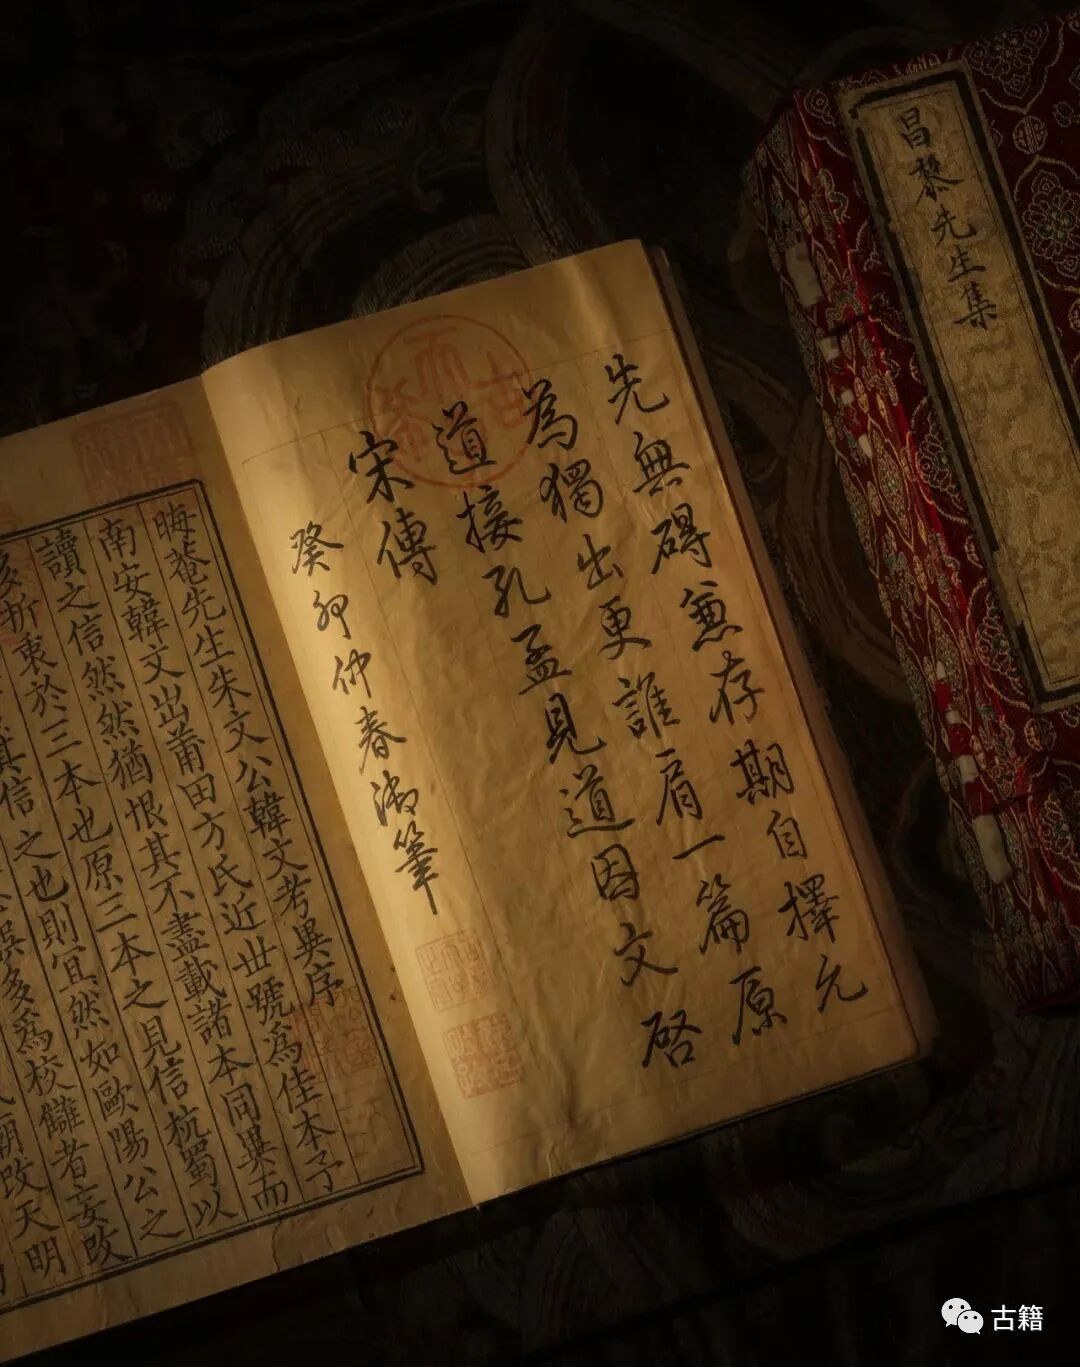 昌黎先生集
先無碍兼存期自擇允
為獨出更誰肩一篇原
道接孔孟見道因文啓
宋傳
癸卯仲春御筆
晦菴先生朱文公韓文考異序
南安韓文出莆田方氏近世號為佳本予
讀之信然然猶恨其不盡載諸本同異而
多折衷於三本也原三本之見信杭蜀以
其信之也則宜然如歐陽公之
誤多為校讎者妄改
廟改天明
古籍